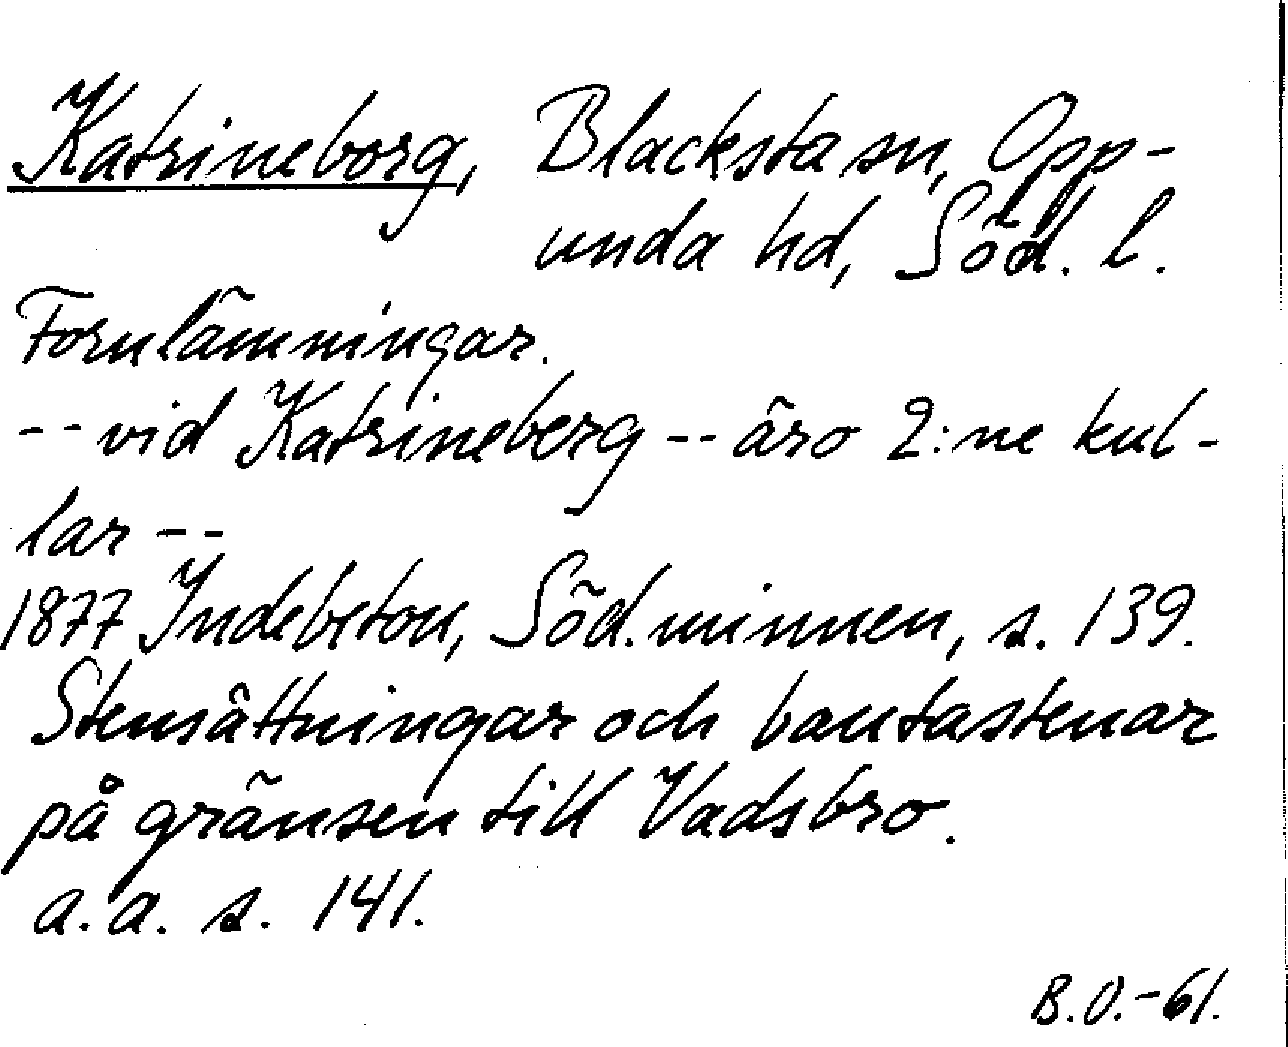 Katrineborg, Blacksta sn, Opp-
unda hd, Söd. l.
Fornlämningar.
-- vid Katrineberg -- äro 2:ne kul-
lar --
1877 Indebetou, Söd. minnen, s. 139.
Stensättningar och bautastenar
på gränsen till Vadsbro.
a. a. s. 141.
B.O.-61.